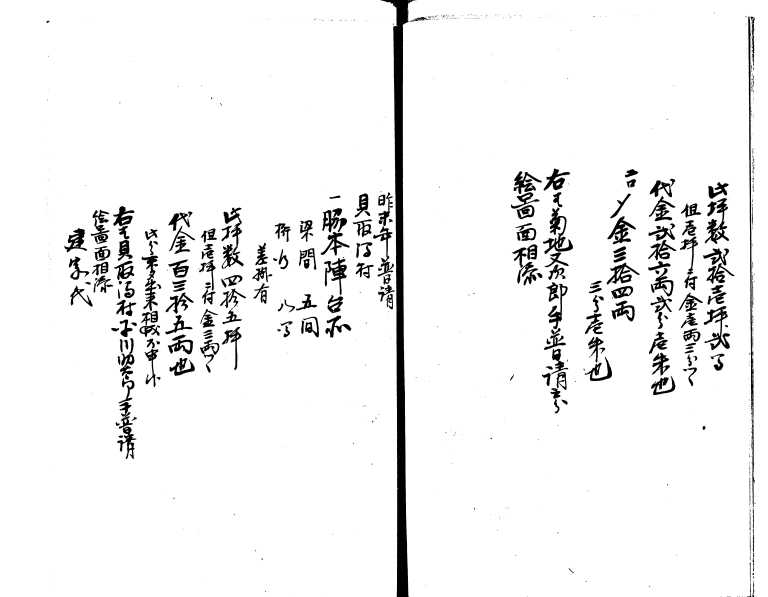 此坪数弐拾壱坪弐合
但壱坪ニ付金壱両三分ツヽ
代金弐拾六両弐分壱朱也
二口〆金三拾四両
三分壱朱也
右者菊地文次郎手普請之分
絵図面相添
昨未年普請
貝取澗村
一脇本陣台所
梁間 五間
桁行 八間
差掛有
此坪数四拾五坪
但壱坪ニ付金三両ツヽ
代金百三拾五両也
出来相成不申候
右者貝取澗村 川助 手普請
絵図面相添
建家代